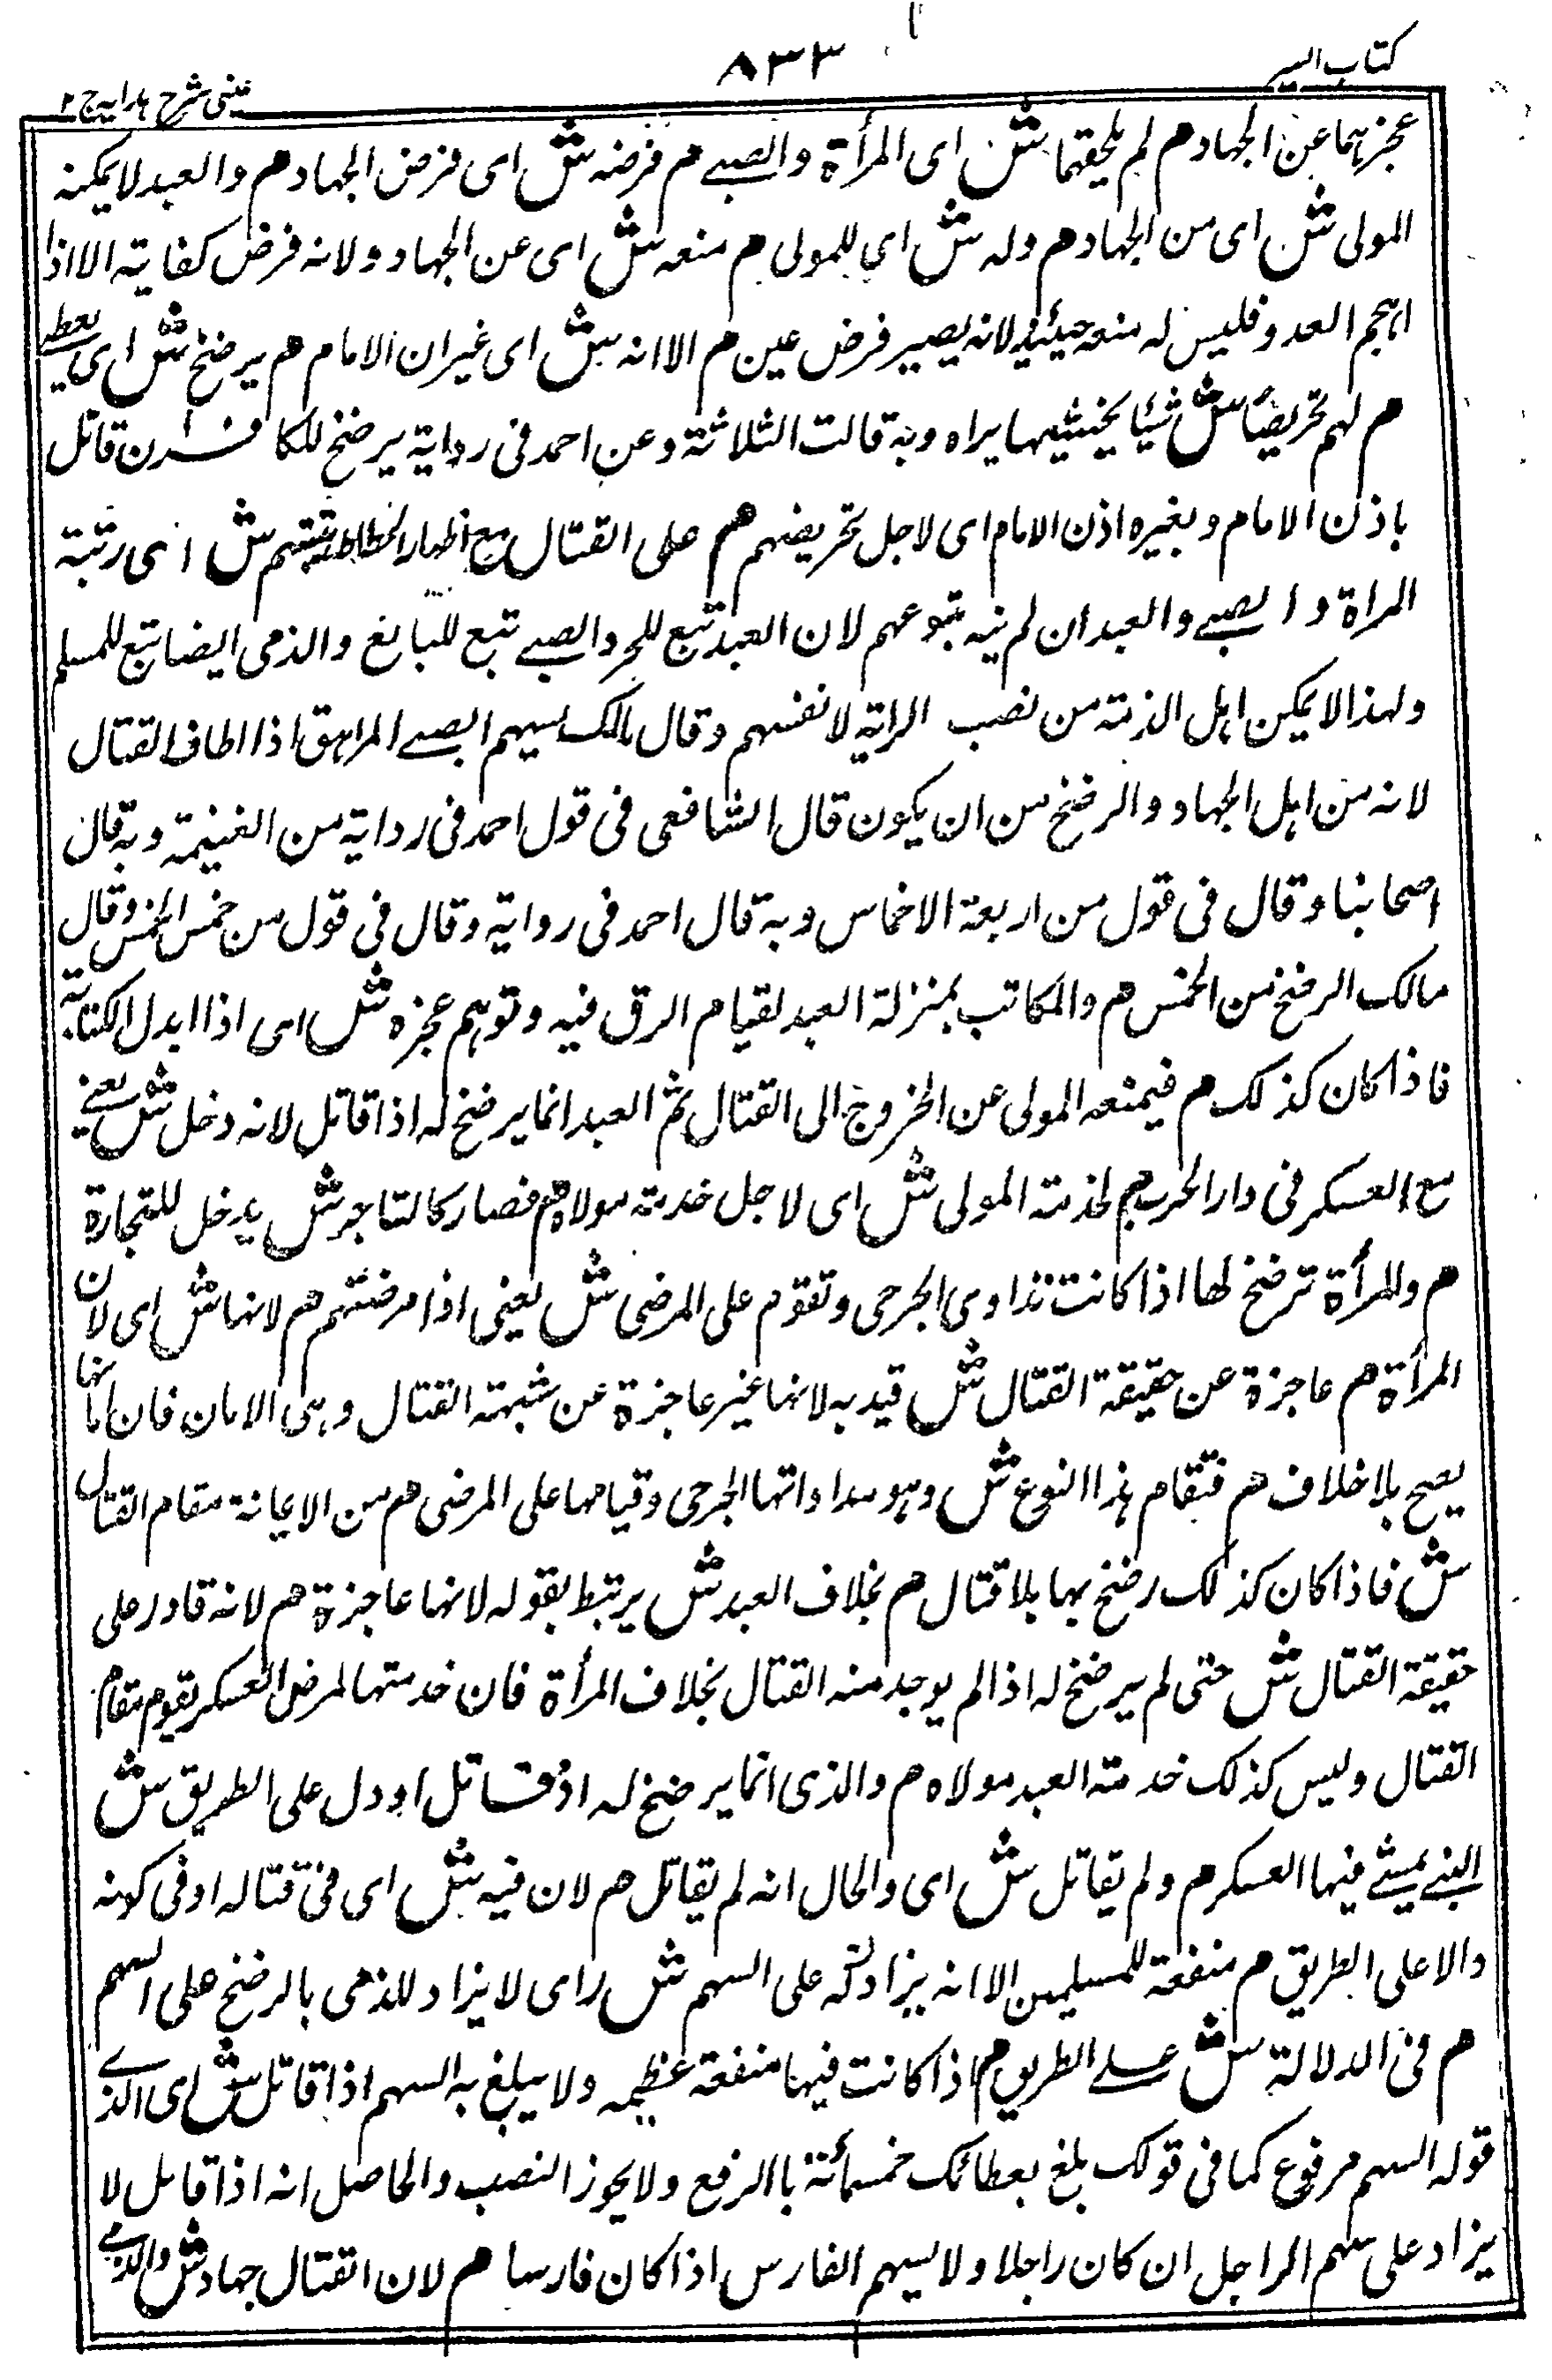 كتاب السير
٨٣٣
عينى شرح هدايہ ج ٢
عجزهما عن الجهاد م لم يلحقهما ش اى المرأة والصبے م فرضه ش اى فرض الجهاد م والعبد لا يمكنه
المولى ش اى من الجهاد م وله ش اى للمولى م منعه ش اى عن الجهاد ولانه فرض كفاية الا اذا
اهجم العدو فليس له منعه حينئذ لانه يصير فرض عين م الا انه ش اى غير ان الامام م يرضخ ش اى يعطے
م لهم تحريضا ش شيئا بحسب ما يراه وبه قالت الثلاثة وعن احمد فى رواية يرضخ للكافر ان قاتل
باذن الامام وبغيره اذن الامام اى لاجل تحريضهم م على القتال مع اظهار انحطاط رتبتهم ش اى رتبة
المراة والصبے والعبد ان لم ينه متبوعهم لان العبد تبع للحر والصبے تبع للبالغ والذمى ايضا تبع للمسلم
ولهذا لا يمكن اهل الذمة من نصب الراية لانفسهم وقال مالك يسهم الصبے المراهق اذا اطاق القتال
لانه من اهل الجهاد والرضخ من ان يكون قال الشافعى فى قول احمد فى رواية من الغنيمة وبه قال
اصحابنا وقال فى قول من اربعة الاخماس وبه قال احمد فى رواية وقال فى قول من خمس الخمس وقال
مالك الرضخ من الخمس م والمكاتب بمنزلة العبد لقيام الرق فيه وتوهم عجزه ش اى اذا ابدل الكتابة
فاذا كان كذلك م فيمنعه المولى عن الخروج الى القتال ثم العبد انما يرضخ له اذا قاتل لانه دخل ش يعنے
مع العسكر فى دار الحرب م لخدمة المولى ش اى لاجل خدمة مولاه م فصار كالتاجر ش يدخل للتجارة
م والمرأة ترضخ لها اذا كانت تداوى الجرحى وتقوم على المرضى ش يعنى اذا مرضتهم م لانها ش اى لان
المرأة م عاجزة عن حقيقة القتال ش قيد به لانها غير عاجزة عن شبهة القتال وهى الامان فان امانها
يصح بلا خلاف م فتقام هذا النوع ش وهو مداواتها الجرحى وقيامها على المرضى م من الاعانة مقام القتال
ش فاذا كان كذلك رضخ بها بلا قتال م بخلاف العبد ش يرتبط بقوله لانها عاجزة م لانه قادر على
حقيقة القتال ش حتى لم يرضخ له اذا لم يوجد منه القتال بخلاف المرأة فان خدمتها لمرضى العسكر يقوم مقام
القتال وليس كذلك خدمة العبد مولاه م والذى انما يرضخ له اذ قاتل او دل على الطريق ش
التے يمشے فيها العسكر م ولم يقاتل ش اى والحال انه لم يقاتل م لان فيه ش اى فى قتاله او فى كونه
دالا على الطريق م منفعة للمسلمين الا انه يزاد له على السهم ش اى لا يزاد للذمى بالرضخ على السهم
م فى الدلالة ش علے الطريق م اذا كانت فيها منفعة عظيمه ولا يبلغ به السهم اذا قاتل ش اى الذے
قوله السهم مرفوع كما فى قولك بلغ بعطائك خمسمائة باالرفع ولا يجوز النصب والحاصل انه اذا قاتل لا
يزاد على سهم الراجل ان كان راجلا ولا يسهم الفارس اذا كان فارسا م لان القتال جهاد ش والذمے